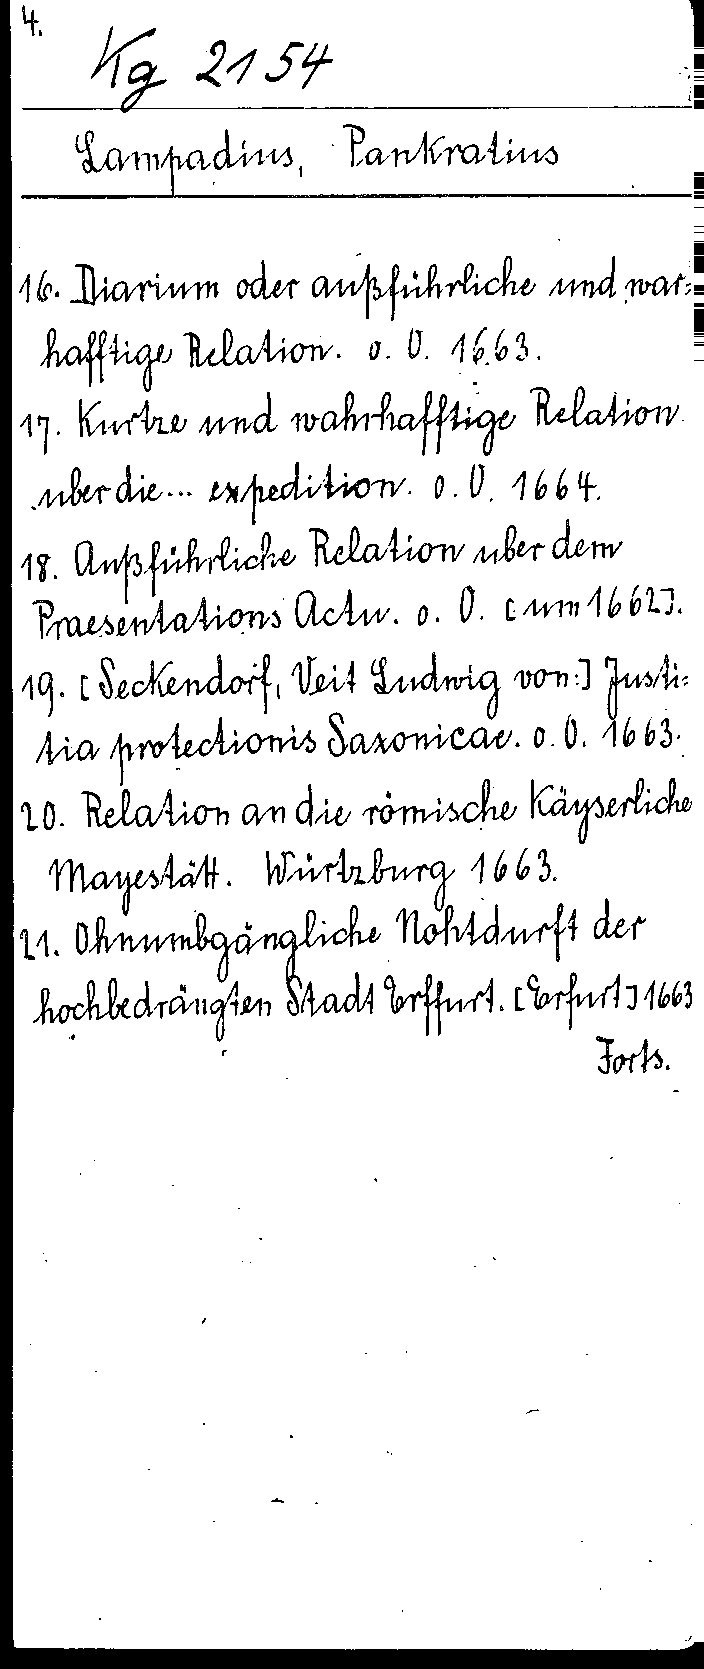 4.
Kg 2154
Lampadius, Pankratius
16. Diarium oder außführliche und war=
hafftige Relation. o. O. 1663.
17. Kurtze und wahrhafftige Relation
uber die... expedition. o. O. 1664.
18. Außführliche Relation uber dem
Praesentations Actu. o. O. [um 1662].
19. [Seckendorf, Veit Ludwig von:] Justi=
tia protectionis Saxonicae. o. O. 1663.
20. Relation an die römische Käyserliche
Mayestätt. Würtzburg 1663.
21. Ohnumbgängliche Nohtdurft der
hochbedrängten Stadt Erffurt. [Erfurt] 1663
Forts.